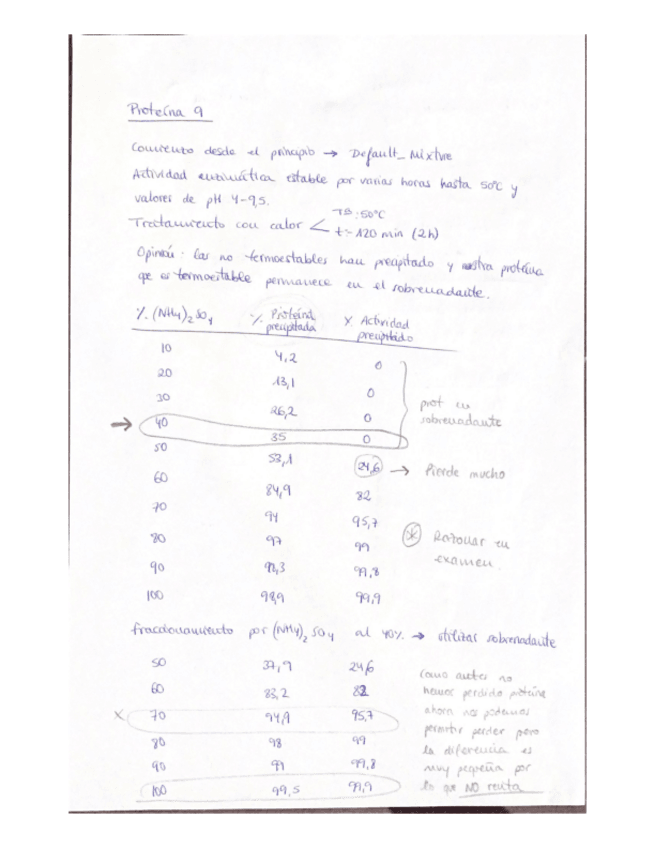 Proteína 9
Comienzo desde el principio → Default_Mixture
Actividad enzimática estable por varias horas hasta 50°C y
valores de pH 4-9,5.
Tratamiento con calor < Tª: 50°C
t: 120 min (2h)
Opinión: las no termoestables han precipitado y nuestra proteína
que es termoestable permanece en el sobrenadante.
%. (NH4)2SO4 %. Proteína precipitada %. Actividad precipitado
10 4,2 0
20 13,1 0
30 26,2 0
→ 40 35 0
prot en
sobrenadante
50 53,1 24,6 → Pierde mucho
60 84,9 82
70 94 95,7
80 97 99
* Razonar en
examen.
90 98,3 99,8
100 98,9 99,9
fraccionamiento por (NH4)2SO4 al 40% → utilizar sobrenadante
50 37,9 24,6
60 83,2 82
x 70 94,9 95,7
80 98 99
90 99 99,8
100 99,5 99,9
Como antes no
hemos perdido proteína
ahora nos podemos
permitir perder pero
la diferencia es
muy pequeña por
lo que NO renta